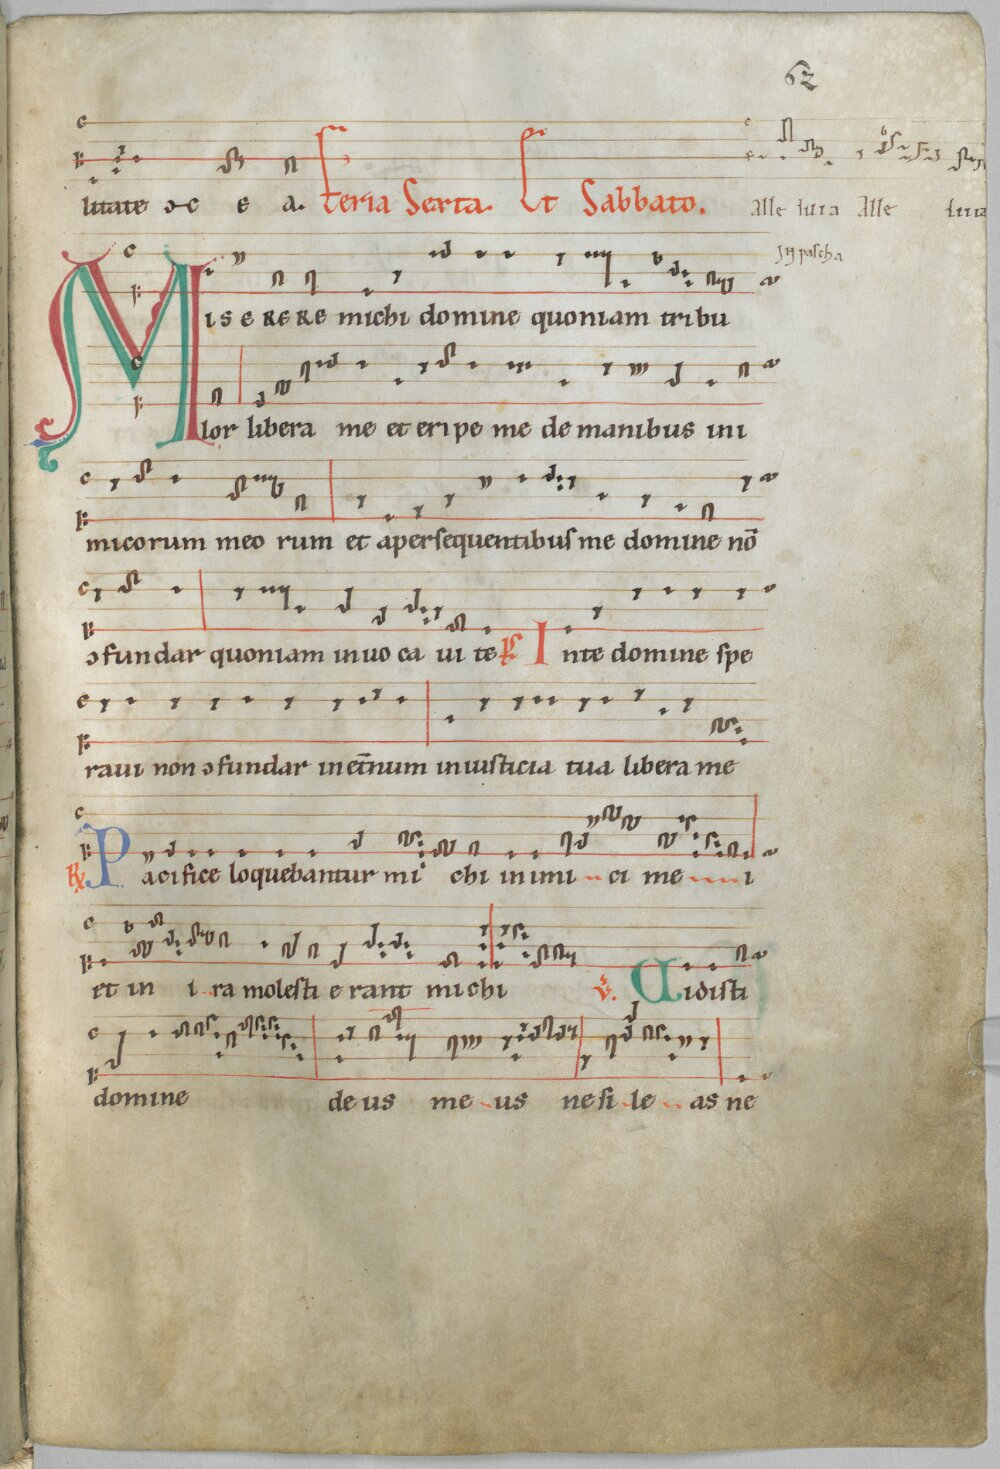 62
litate ɔc e a. Feria Sexta. Et Sabbato. Alle luia Alle luia
In pascha
MISERERE michi domine quoniam tribu
lor libera me et eripe me de manibus ini
micorum meo rum et apersequentibus me domine nō
ɔfundar quoniam inuo ca ui te In te domine spe
raui non ɔfundar inet̄num iniusticia tua libera me
℟ Pacifice loquebantur mi chi inimi ci me i
et in i ra molesti e rant michi ℣. Uidisti
domine deus me us ne si le as ne